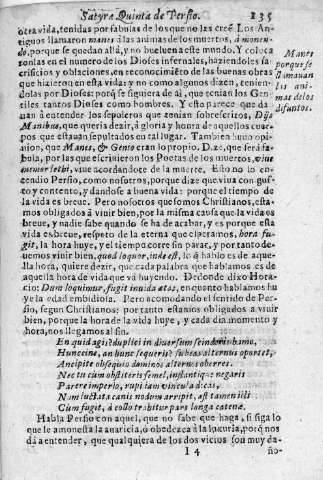 Satyra Quinta de Persio. 135
otra vida, tenidas por fabulas de los que no las creē. Los An-
tiguos llamaron manes â las animas de los muertos, à manen-
do, porque se quedan allà, y no bueluen a este mundo. Y coloca
ronlas en el numero de los Dioses infernales, haziendoles sa-
crificios y oblaciones, en reconocimiēto de las buenas obras
que hizierō en esta vida: y no como algunos dizen, tenien-
dolas por Diosas: porq̃ se siguiera de aî, que tenian los Gen-
tiles tantos Dioses como hombres. Y esto parece que da
uan à entender los sepulcros que zenian sobrescritos, Dijs
Manibus, que queria dezir, à gloria y honra de aquellos cuer-
pos que estauan sepultados en tal lugar. Tambien huuo opi-
nion, que Manes, & Genio eran lo propio. Dize, que serà fa-
bula, por las que escriuieron los Poetas de los muertos, viue
memor lethi, viue acordandote de la muerte. Esto no lo en-
tendio Persio, como nosotros, porque dize que viua con gus-
to y contento, y dandose a buena vida: porque el tiempo de
la vida es breue. Pero nosotros que somos Christianos, esta-
mos obligados à viuir bien, por la misma causa que la vida es
breue, y nadie sabe quando se ha de acabar, y es porque esta
vida es breue, respeto de la eterna que esperamos, hora fu-
git, la hora huye, y el tiempo corre sin parar, y por tanto de-
uemos viuir bien, quod loquor, inde est, lo q̃ hablo es de aque-
lla hora, quiere dezir, que cada palabra que hablamos es de
aquella hora de vida que và huyendo. De donde dixo Hora-
cio: Dum loquimur, fugit inuida ætas, en quanto hablamos hu
ye la edad embidiosa. Pero acomodando el sentido de Per-
sio, segun Christianos: por tanto estamos obligados a viuir
bien, porque la hora de la vida huye, y cada dia momento y
hora, nos llegamos al fin.
En quid agis? duplici in diuersum scinderis hamo,
Huncine, an hunc sequeris? subeas alternus oportet,
Ancipite obsequio dominos alternus oberres.
Nec tu cùm obstiteris semel, instantique negaris
Parere imperio, rupi iam vincula dicas,
Nam luctata canis nodum arripit, ast tamen illi
Cùm fugit, à collo trahitur pars longa catenæ.
Habla Persio con aquel, que no sabe que haga, si siga lo
que le amonesta la auaricia, ò obedezca à la luxuria, porq̃ nos
dà a entender, que qualquiera de los dos vicios son muy da-
I 4 ño-
Manes
porque se
llamauan
las ani-
mas de los
difuntos.